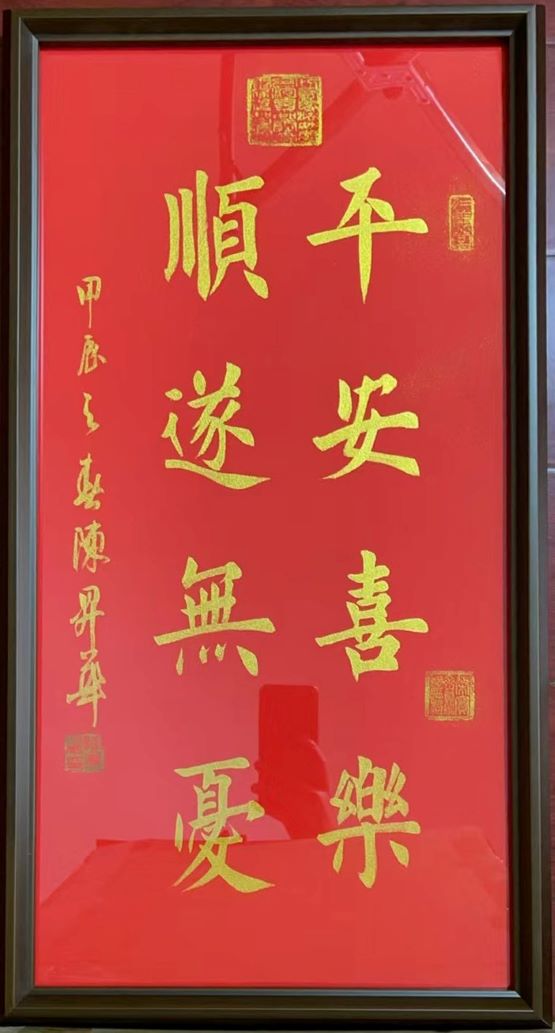 平安喜樂
順遂無憂
甲辰之春陳昇華